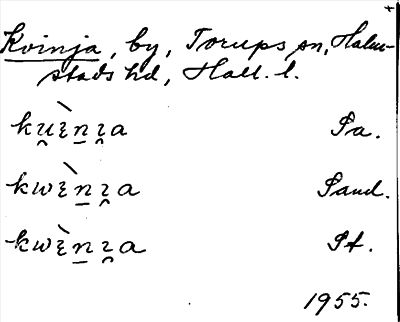 Kvinja, by, Torups sn, Halm-
stads hd, Hall. l.
ku̯ὲn̠ı̯a Pa.
kwὲn̠ı̯a Pand.
kwὲn̠ı̯a Pt.
1955.